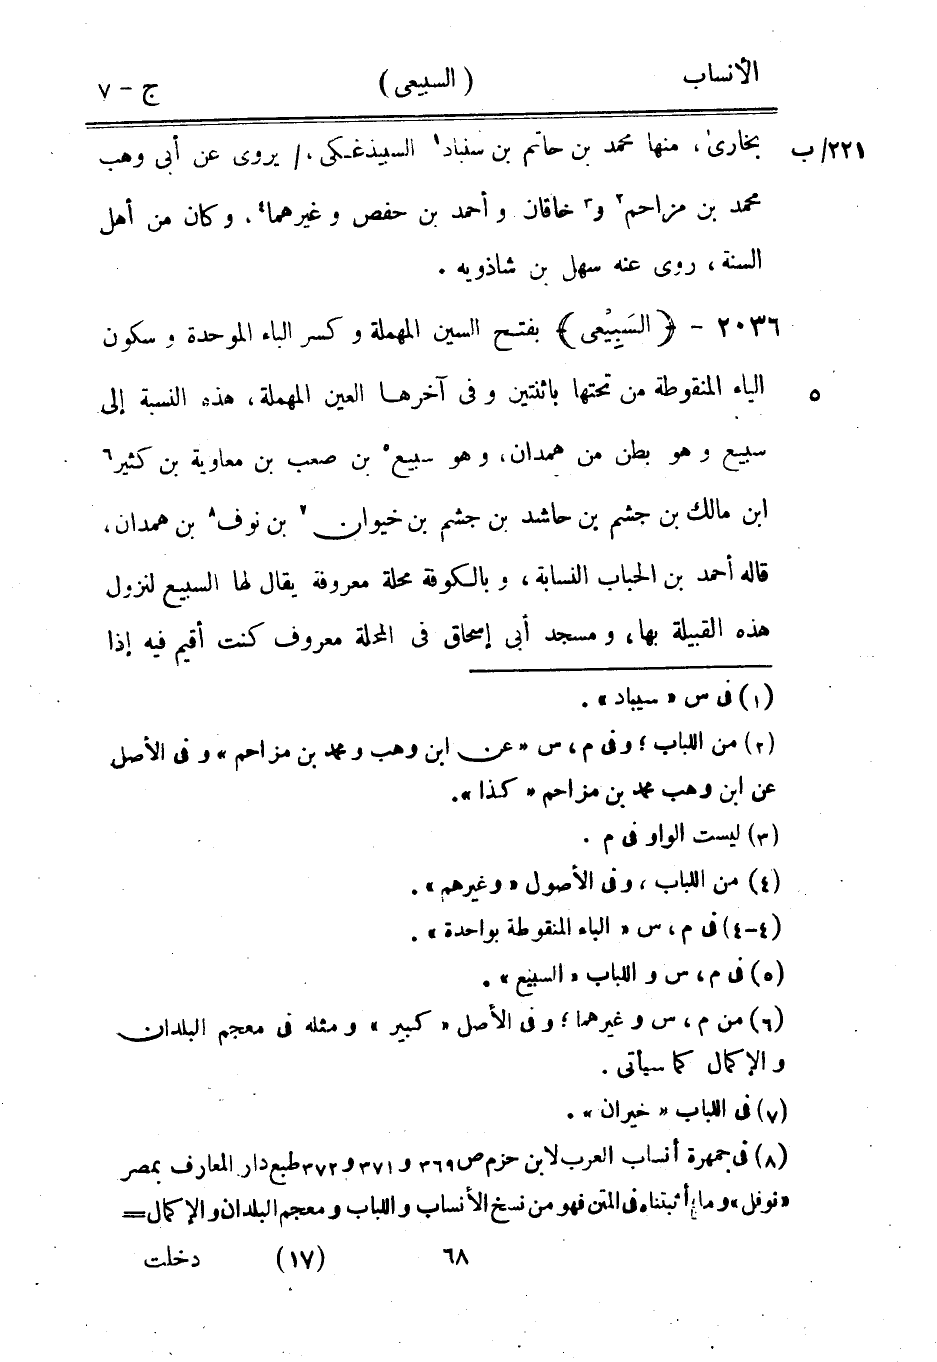 الأنساب (السبيعى) ج - ٧
٢٢١/ب بخارىٰ، منها محمد بن حاتم بن سنباد١ السپذغكى،/ يروى عن أبى وهب
محمد بن مزاحم٢ و٣ خاقان و أحمد بن حفص و غيرهما٤، و كان من أهل
السنة، روى عنه سهل بن شاذويه .
٢٠٣٦ - ﴿السَبِيْعى﴾ بفتح السين المهملة و كسر الباء الموحدة و سكون
٥ الياء المنقوطة من تحتها باثنتين و فى آخرها العين المهملة، هذه النسبة إلى
سبيع و هو بطن من همدان، و هو سبيع٥ بن صعب بن معاوية بن كثير٦
ابن مالك بن جشم بن حاشد بن جشم بن خيوان٧ بن نوف٨ بن همدان،
قاله أحمد بن الحباب النسابة، و بالكوفة محلة معروفة يقال لها السبيع لنزول
هذه القبيلة بها، و مسجد أبى إسحاق فى المحلة معروف كنت أقيم فيه إذا
(١) فى س «سيباد» .
(٢) من اللباب؛ و فى م، س «عن ابن وهب و محمد بن مزاحم» و فى الأصل
عن ابن وهب محمد بن مزاحم «كذا».
(٣) ليست الواو فى م .
(٤) من اللباب، و فى الأصول «وغيرهم» .
(٤-٤) فى م، س «الباء المنقوطة بواحدة» .
(٥) فى م، س و اللباب «السبيع» .
(٦) من م، س و غيرهما؛ و فى الأصل «كبير» و مثله فى معجم البلدان
و الإكمال كما سيأتى .
(٧) فى اللباب «خيران» .
(٨) فى جمهرة أنساب العرب لابن حزم ص ٣٦٩ و ٣٧١ و ٣٧٢ طبع دار المعارف بمصر
«نوفل» و ما أثبتناه فى المتن فهو من نسخ الأنساب و اللباب و معجم البلدان و الإكمال =
٦٨ (١٧) دخلت